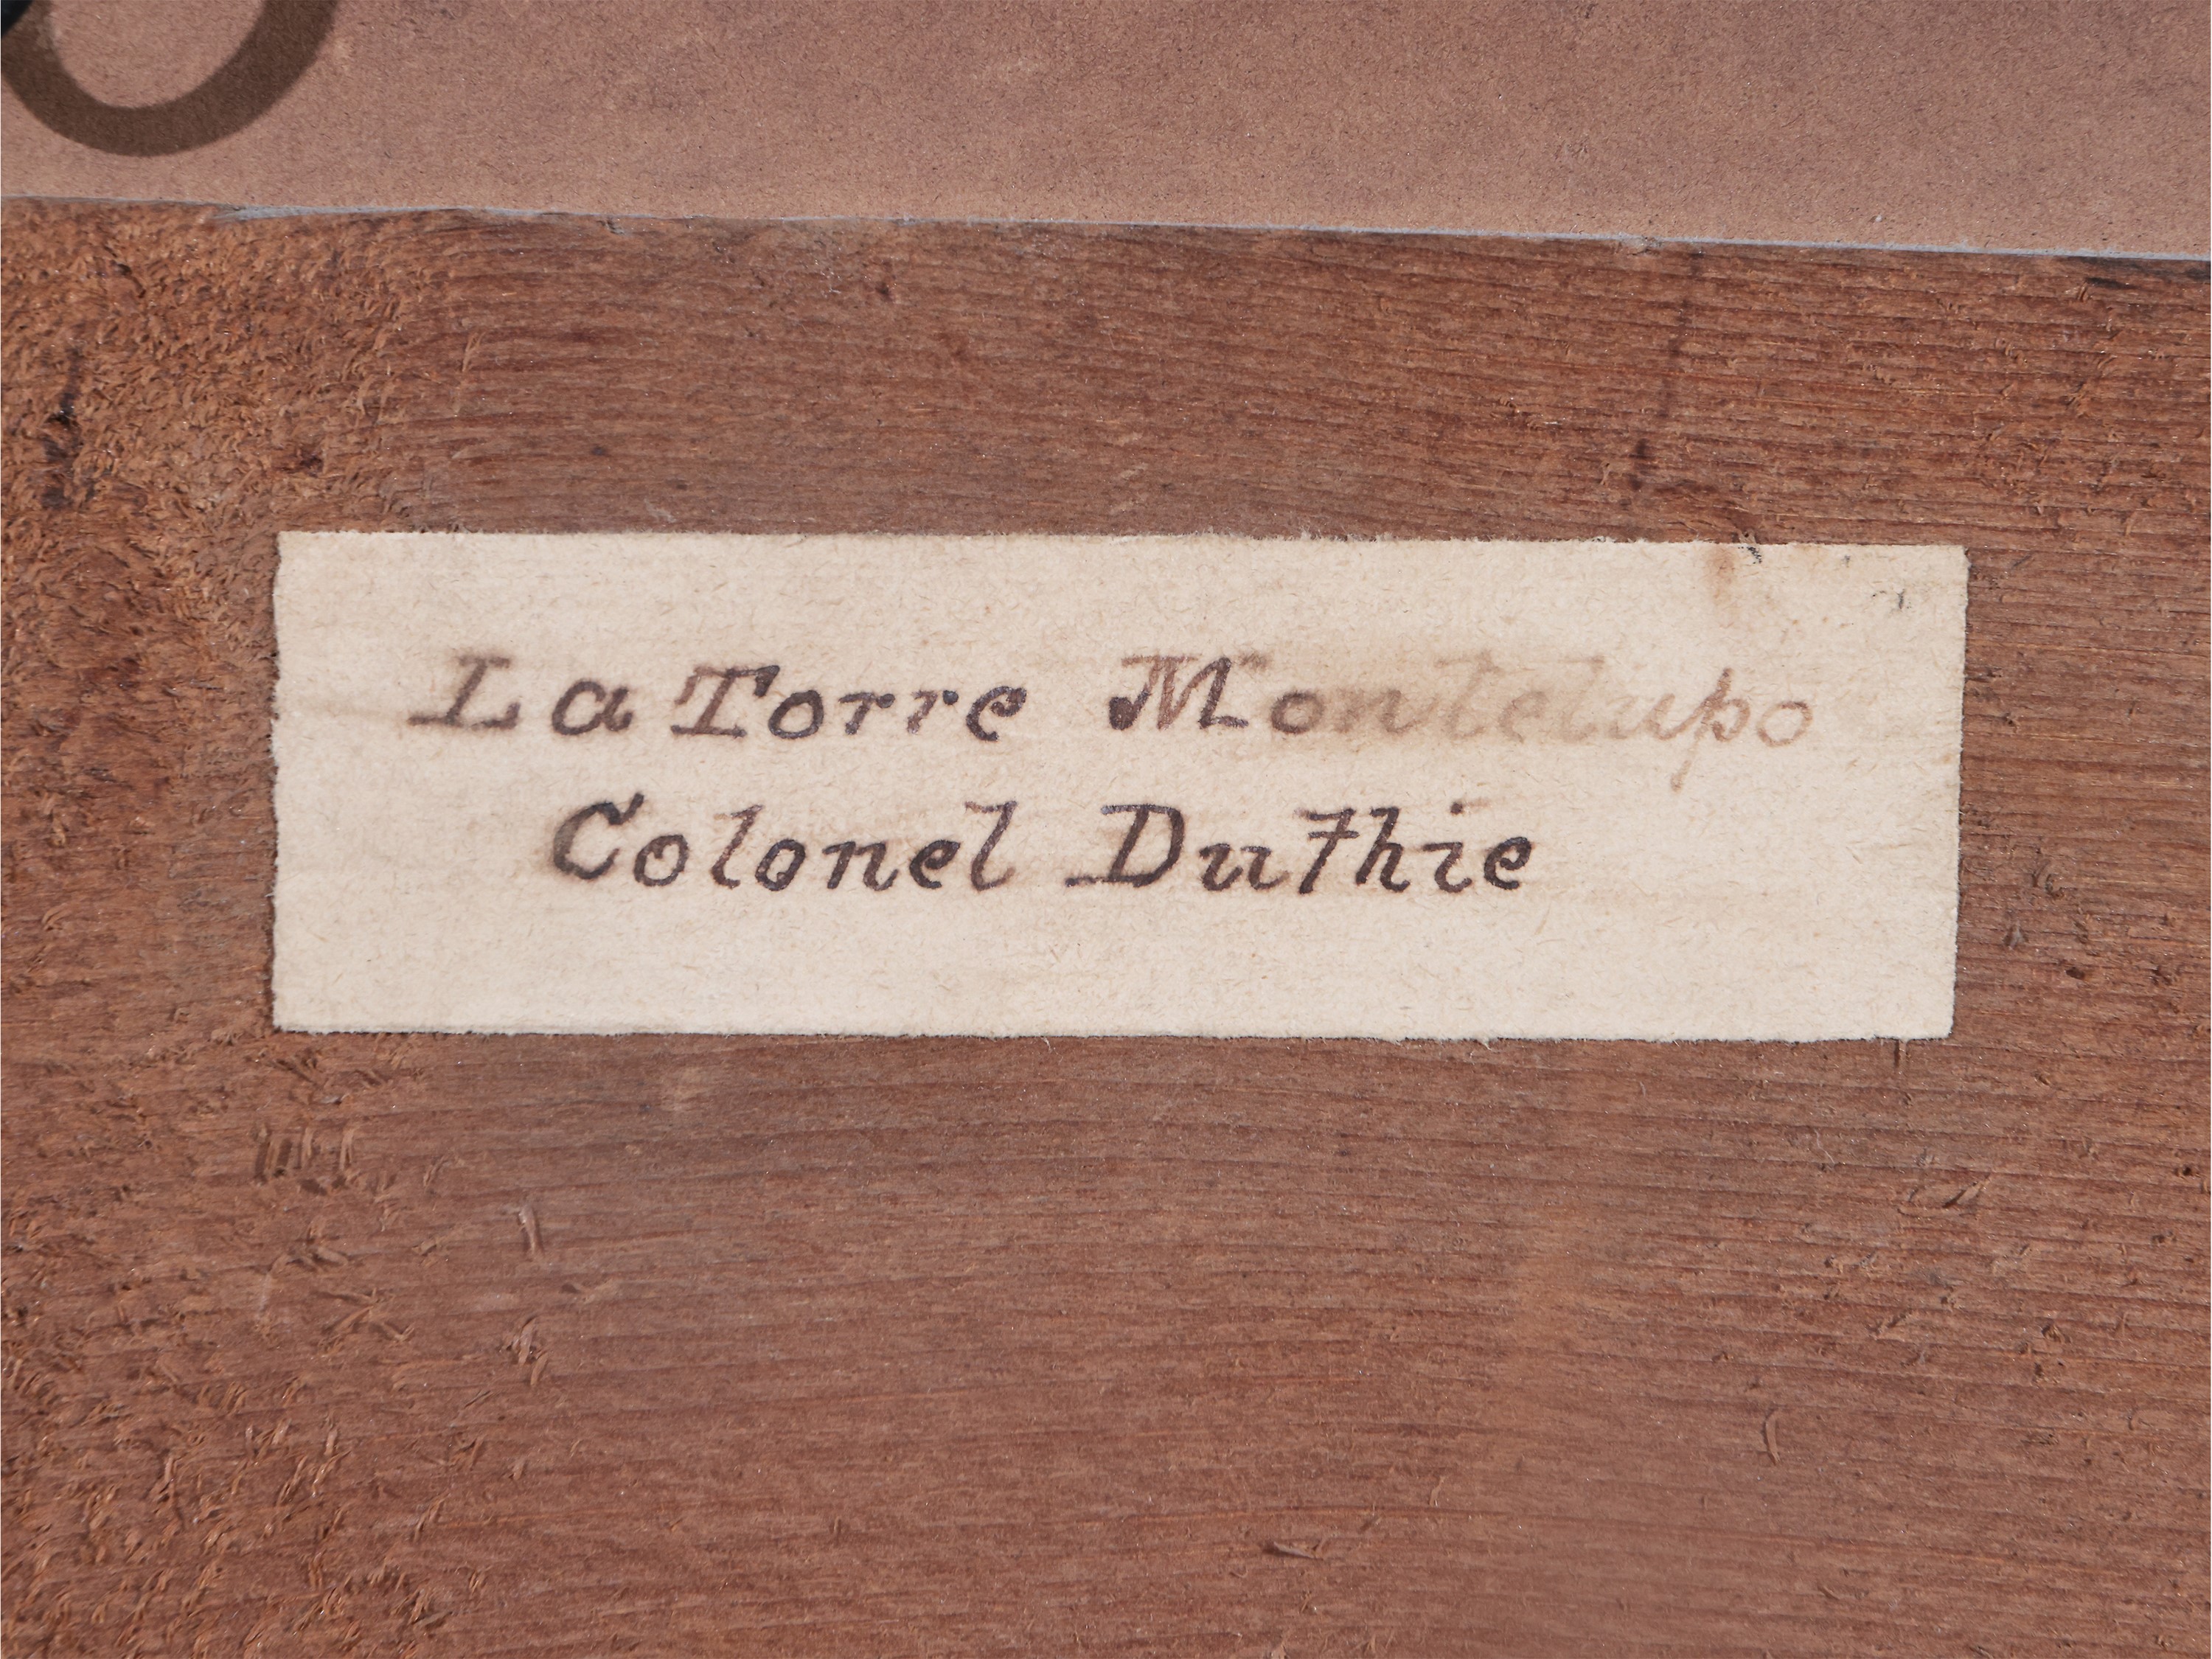 La Torre Montelupo
Colonel Duthie